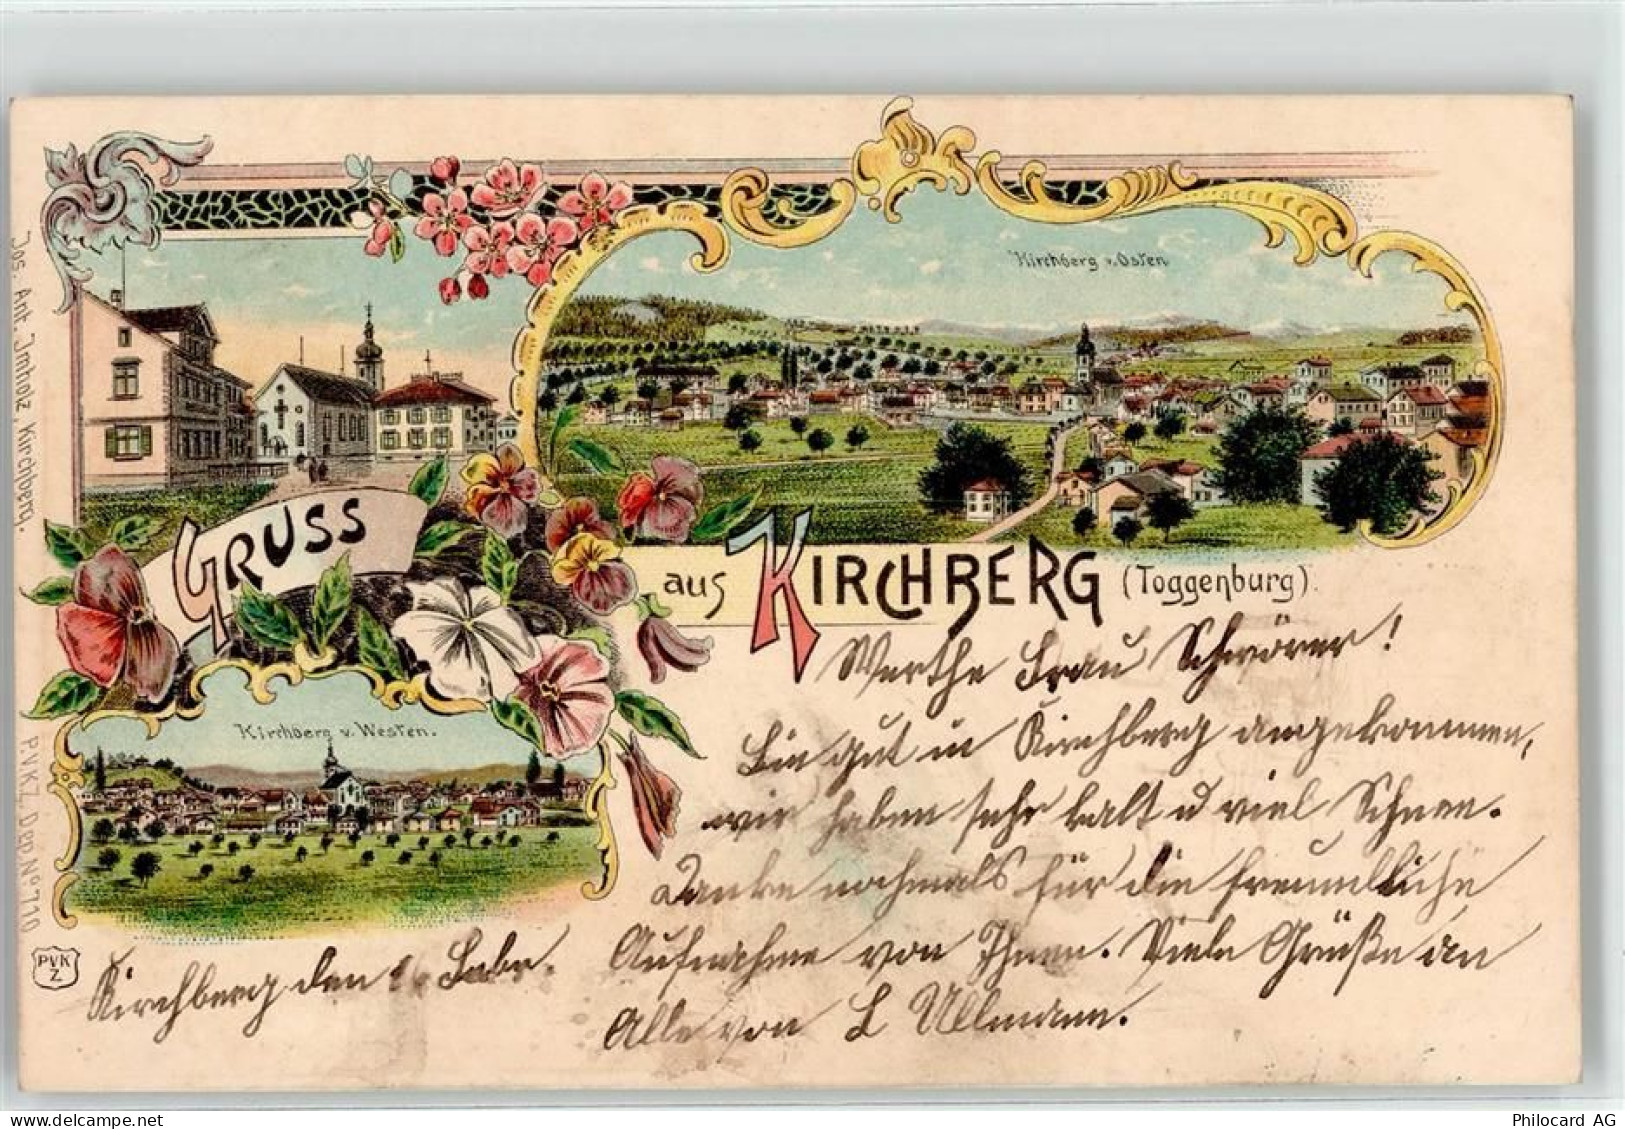 Kirchberg v. Osten
GRUSS
aus KIRCHBERG (Toggenburg).
Kirchberg v. Westen.
Jos. Ant. Imholz Kirchberg.
P.V.K.Z. Dep. No. 710
PVK
Z
Werthe Frau Schwörer!
Bin gut in Kirchberg angekommen,
wir haben sehr kalt u viel Schnee.
Danke nochmals für die freundliche
Aufnahme von Ihnen. Viele Grüße an
Alle von L Ullmann.
Kirchberg den Febr.
Philocard AG